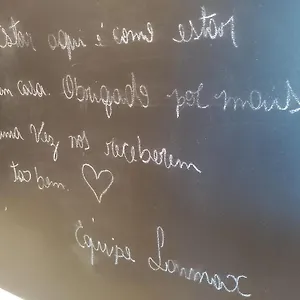 Estar aqui é como estar
em casa. Obrigado por mais
uma vez nos receberem
tão bem. ♡
Equipe Lannax